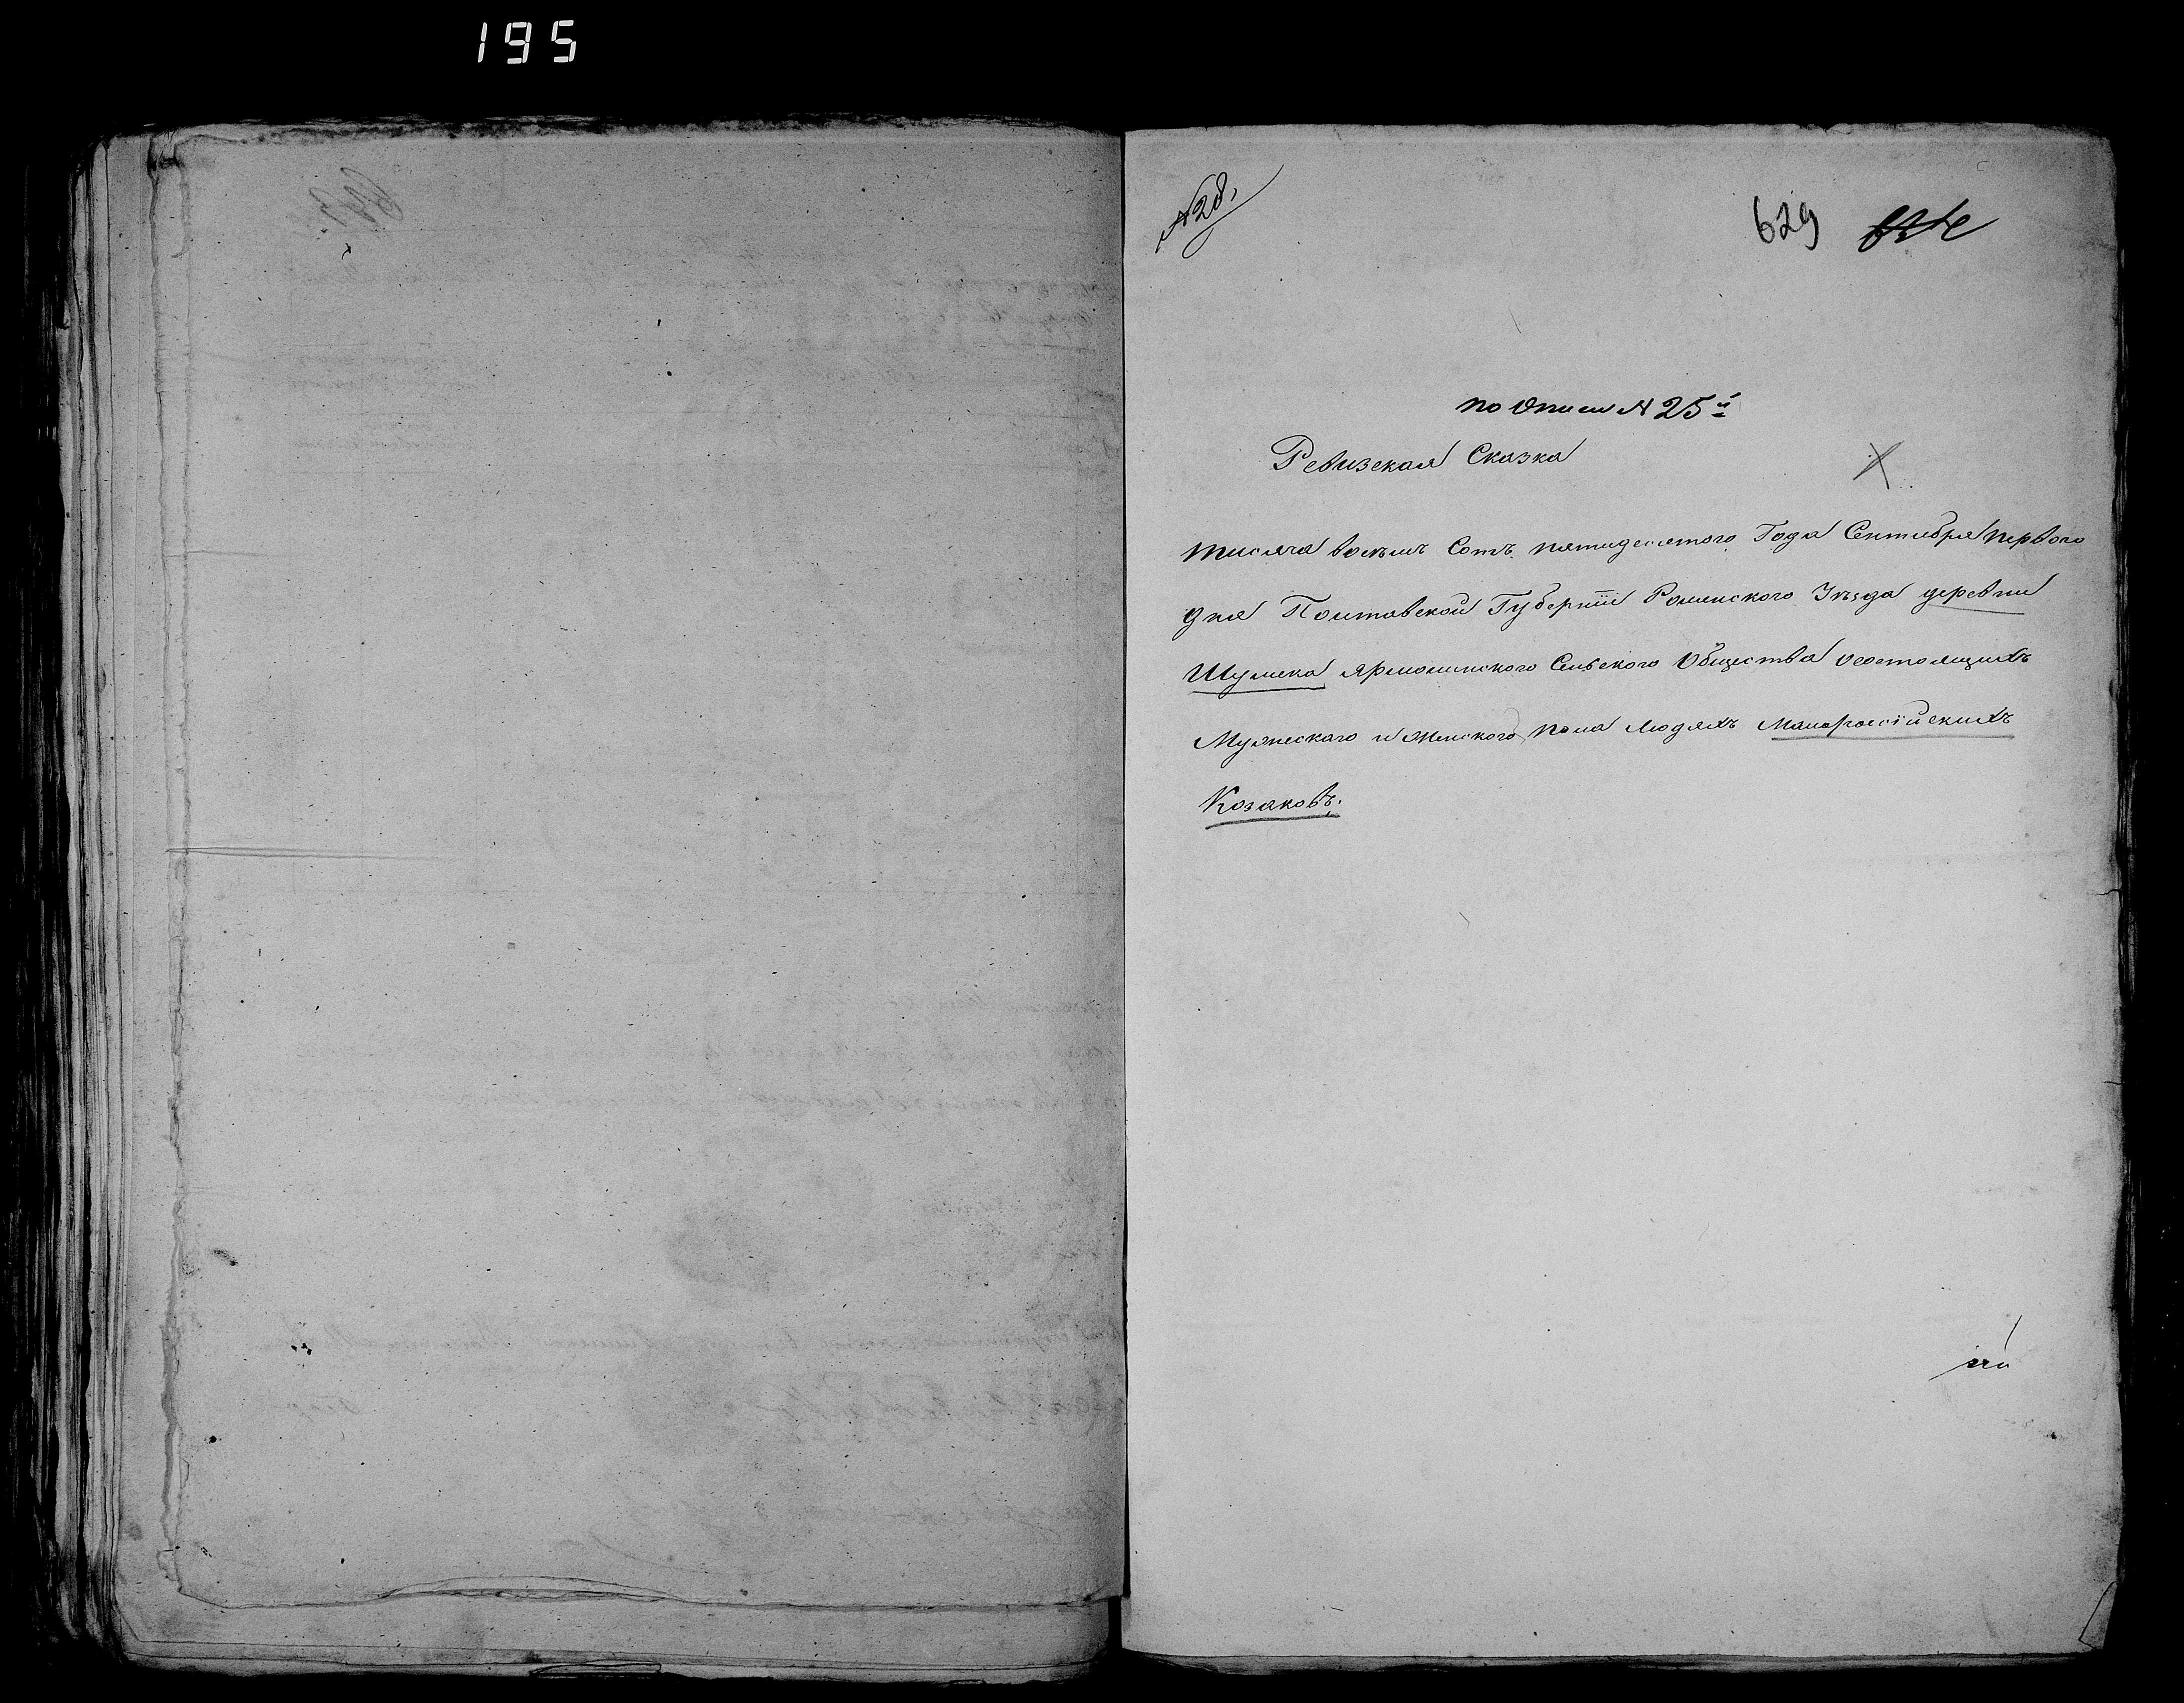 195
№28.
629
по Описи № 25й
Ревизская Сказка
тисяча восемъ Сотъ пятидесятого Года Сентября первого
дня Полтавской Губерніи Роменского Уѣзда деревни
Шумска Ярмолинского Сельского Общества о состоящихъ
Мужескаго и женского пола людяхъ Малороссійскихъ
Козаковъ.